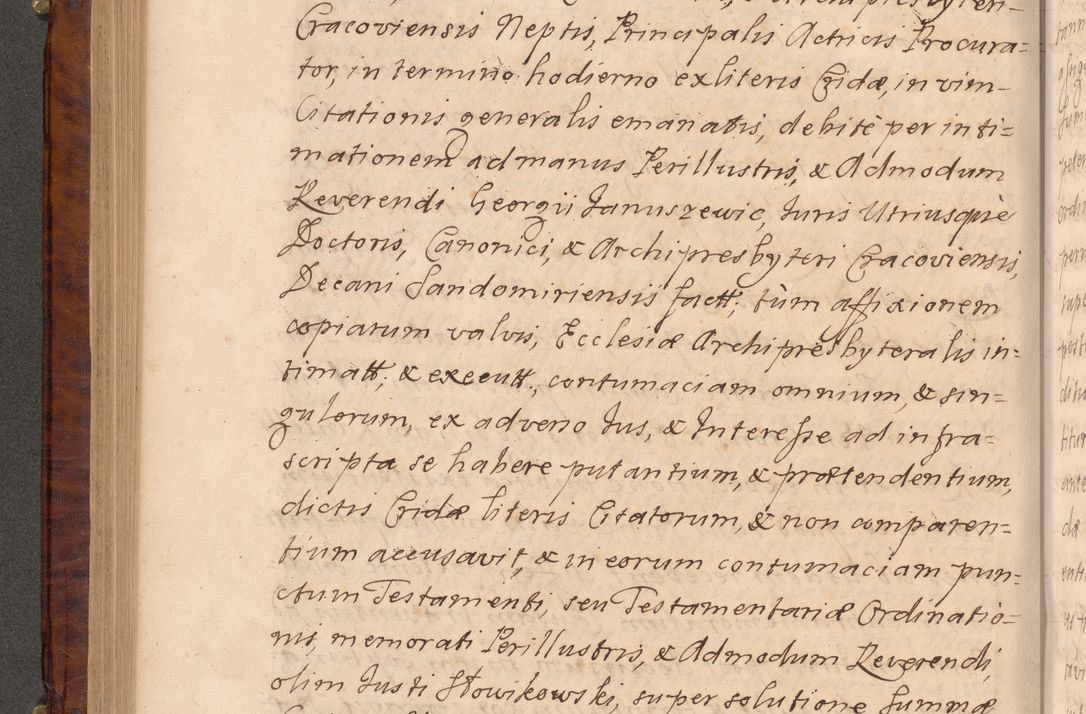 Cracoviensis Neptis, Principalis Actricis Procura=
tor, in termino hodierno ex literis Cridæ, in vim
Citationis generalis emanatis, debitè per inti=
mationem ad manus Perillustris, & Admodum
Reverendi Georgii Januszewic, Juris Utriusquè
Doctoris, Canonici, & Archipresbyteri Cracoviensis,
Decani Sandomiriensis factt; tùm affixionem
copiarum valvis, Ecclesiæ Archipresbyteralis in=
timatt, & executt, contumaciam omnium, & sin=
gulorum, ex adverso Jus, & Interesse ad infra=
scripta se habere putantium, & prætendentium,
dictis Cridæ literis Citatorum, & non comparen=
tium accusavit, & in eorum contumaciam pun=
ctum Testamenti, seu Testamentariæ Ordinatio=
nis, memorati Perillustris, & Admodum Reverendi,
olim Justi Słowikowski, super solutione Summæ